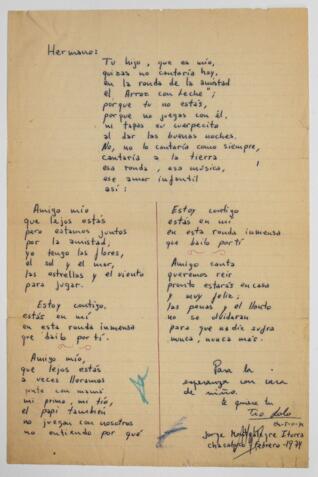 Hermano:
Tu hijo, que es mío,
quizás no cantaría hoy,
en la ronda de la amistad
el "Arroz con leche";
porque tu no estás,
porque no juegas con él,
ni tapas su cuerpecito
al dar las buenas noches.
No, no lo cantaría como siempre,
cantaría a la tierra
esa ronda, esa música,
ese amor infantil
así:
Amigo mío
que lejos estás
pero estamos juntos
por la amistad,
yo tengo las flores,
el sol y el mar,
las estrellas y el viento
para jugar.
Estoy contigo,
estás en mí
en esta ronda inmensa
que bailo por tí.
Amigo mío,
que lejos estás
a veces lloramos
junto con mamá
mi primo, mi tío,
el papi también
no juegan con nosotros
no entiendo por qué
Estoy contigo
estás en mí
en esta ronda inmensa
que bailo por tí
Amigo canta
queremos reir
pronto estarás en casa
y muy feliz;
las penas y el llanto
no se olvidaran
para que nadie sufra
nunca, nunca más.
Para la
esperanza con cara
de niño.
te quiere tu
Tío Lolo
Jorge Montealegre Iturra
Chacabuco - Febrero - 1974